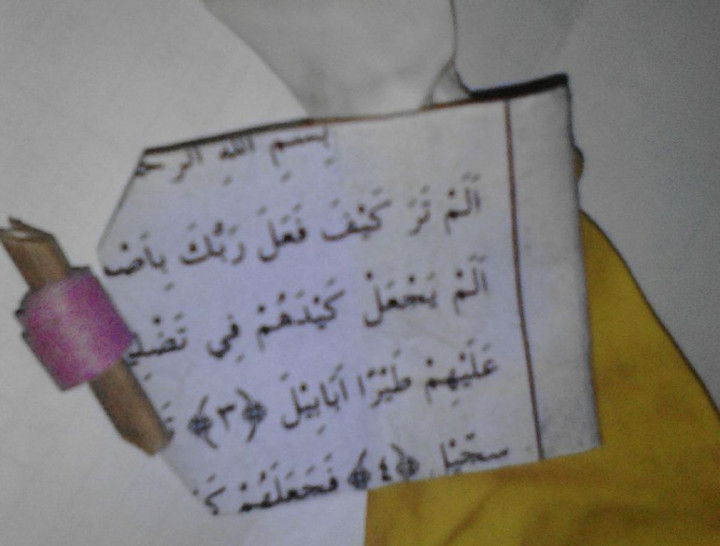 بِسْمِ اللهِ الرح
اَلَمْ تَرَ كَيْفَ فَعَلَ رَبُّكَ بِاَصْ
اَلَمْ يَجْعَلْ كَيْدَهُمْ فِي تَضْلِي
عَلَيْهِمْ طَيْرًا اَبَابِيْلَ ﴿٣﴾ تَ
سِجّيْلٍ ﴿٤﴾ فَجَعَلَهُمْ كَ